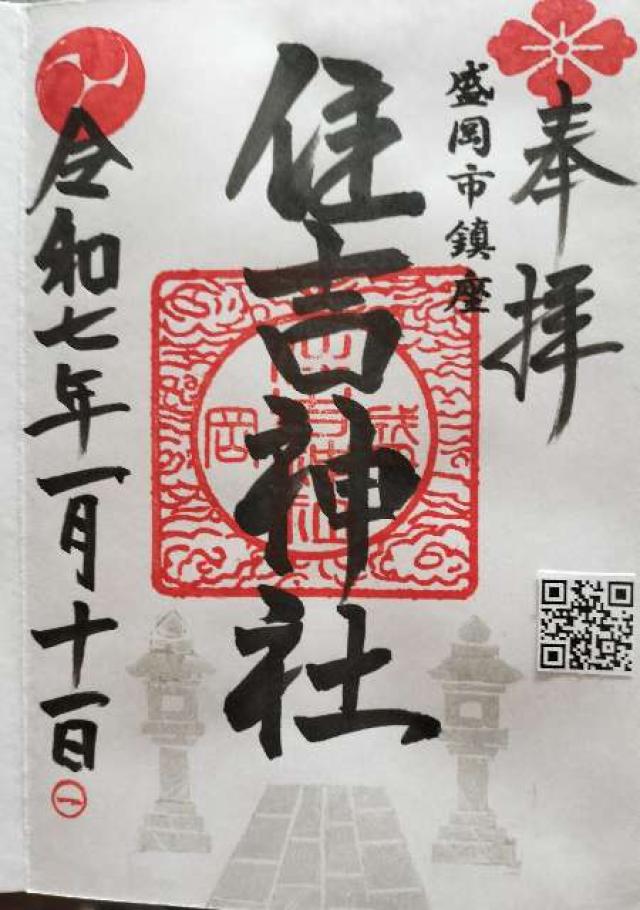 奉拝
盛岡市鎮座
住吉神社
令和七年一月十一日